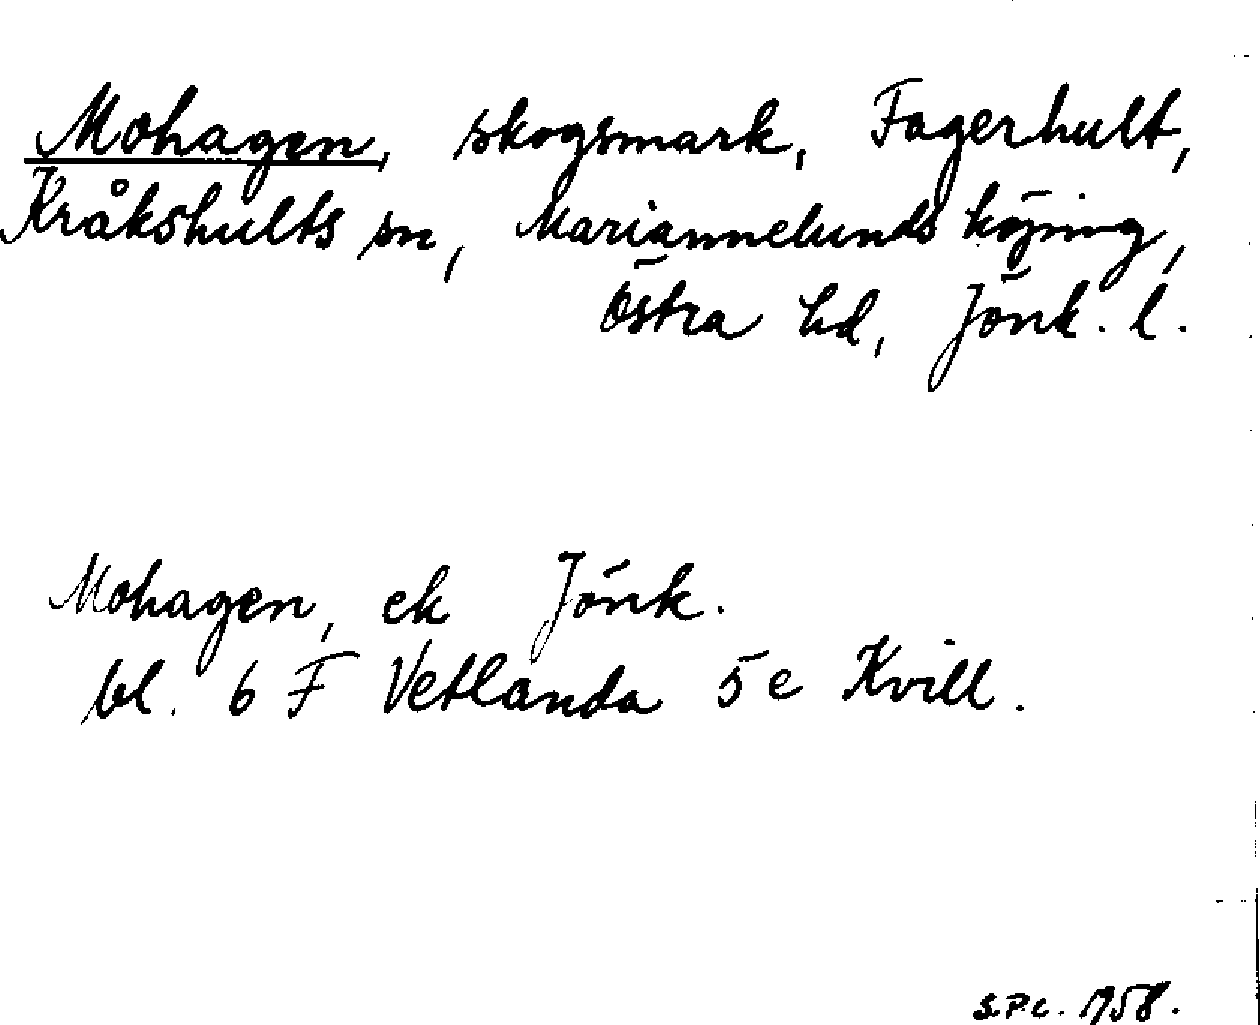 Mohagen, skogsmark, Fagerhult,
Kråkshults sn, Mariannelunds köping,
Östra hd, Jönk. l.
Mohagen, ek Jönk.
bl. 6 F Vetlanda 5 e Kvill.
S.P.C. 1958.